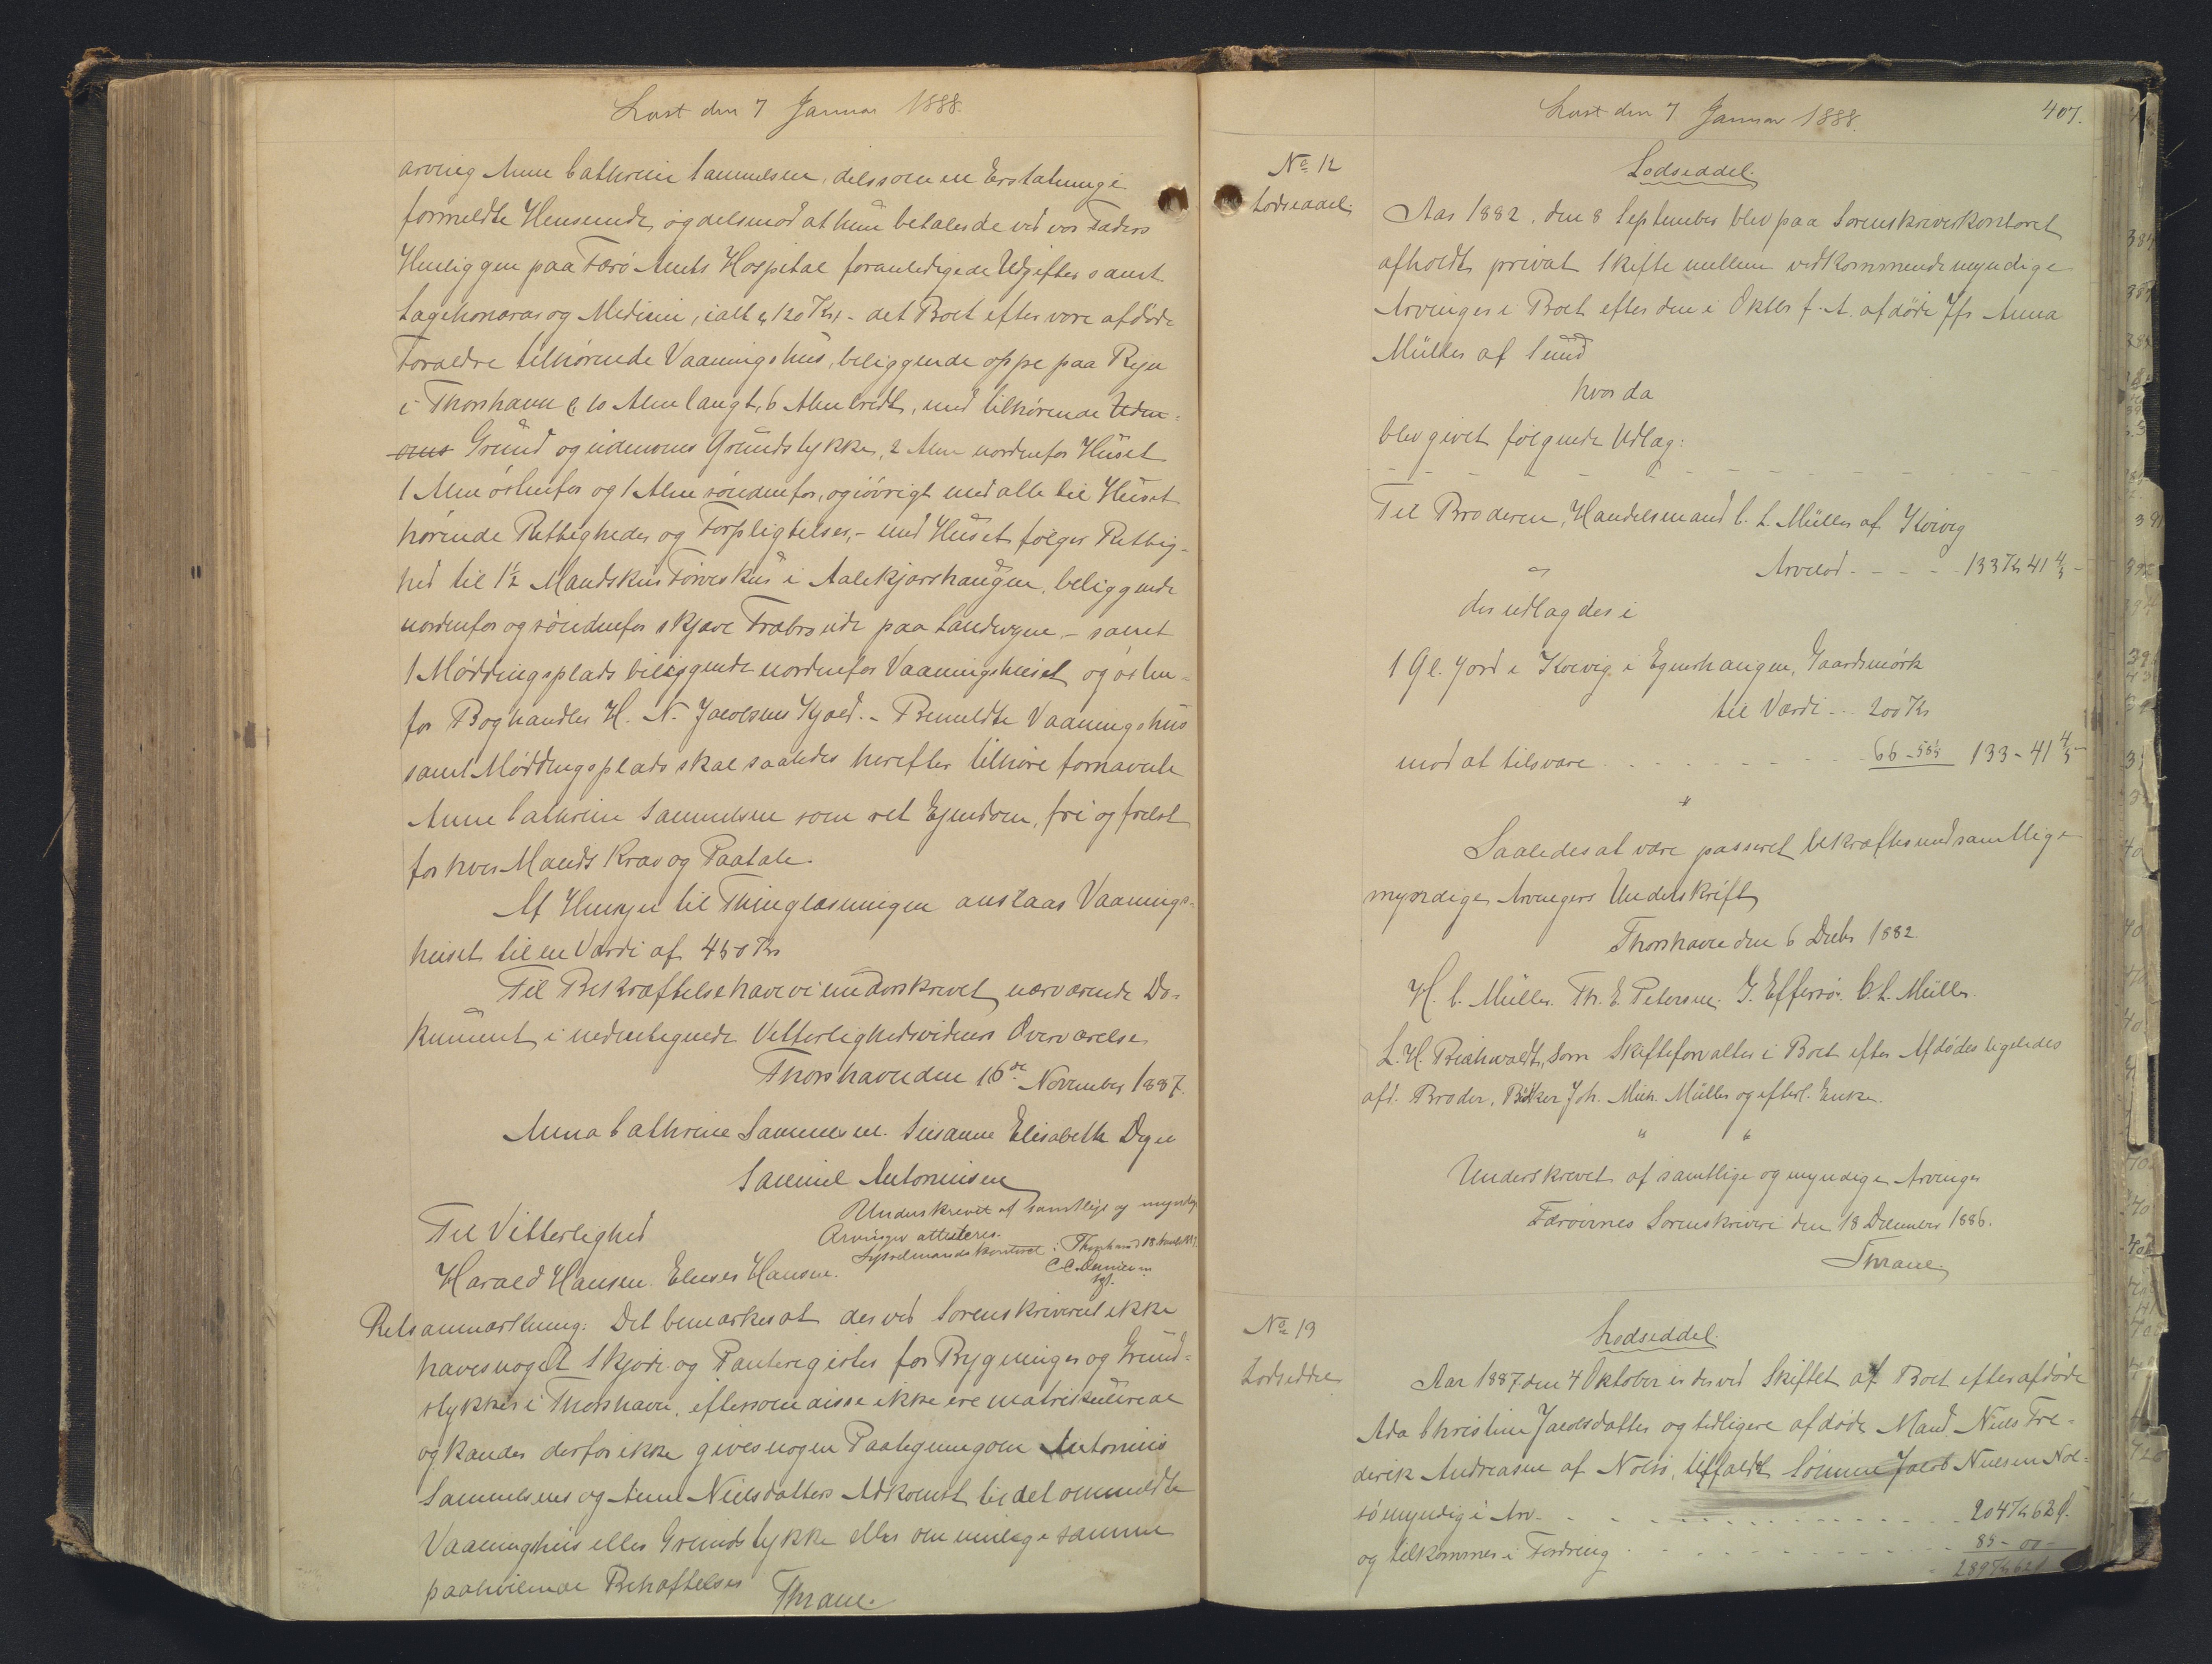 Læst den 7 Januar 1888.
arving Anne Cathrine Samuelsen, dels som en Erstatning i
formeldte Henseende og dels mod at hun betaler de ved vor Faders
Henliggen paa Færø Amts Hospital foranledigede Udgifter samt
Lægehonorar og Medicin, ialt 120 Kr, - det Boet efter vore afdøde
Forældre tilhørende Vaaningshus, beliggende oppe paa Reyn
i Thorshavn 10 Alen langt, 6 Alen bredt, med tilhørende Uden-
oms Grund og udenoms Grundstykke, 2 Alen nordenfor Huset
1 Alen østenfor og 1 Alen søndenfor, og iøvrigt med alle til Huset
hørende Rettigheder og Forpligtelser, - med Huset følger Rettig-
hed til 1½ Mandskur Tørveskur i Aalekjærshaugen, beliggende
nordenfor og søndenfor skjæve paa Landevejene, - samt
1 Møddingsplads beliggende nordenfor Vaaningshuset og østen-
for Boghandler H. N. Jacobsens Kjæld. - Bemeldte Vaaningshus
samt Møddingsplads skal saaledes herefter tilhøre fornævnte
Anne Cathrine Samuelsen som ret Ejendom, fri og frelst
for hver Mands Krav og Paatale.
Af Hensyn til Thinglæsningen anslaas Vaanings-
huset til en Værdi af 450 Kr
Til Bekræftelse have vi underskrevet nærværende Do-
kument i nedentegnede Vitterlighedsvidners Overværelse
Thorshavn den 16de November 1887.
Anna Cathrine Samuelsen. Susanne Elisabeth Degn
Samuel Antoniusen
Underskrevet af samtlige og myndige
Til Vitterlighed
Arvinger attesteres.
Sysselmandskontoret i Thorshavn d 18 Novbr 1887.
Harald Hansen. Elieser Hansen.
Retsanmærkning: Det bemærkes at der ved Sorenskriveriet ikke
haves noget Skjøde- og Panteregister for Bygninger og Grund-
stykker i Thorshavn, eftersom disse ikke ere matrikulerede
og kan der derfor ikke gives nogen Paategning om Antonius
Samuelsens og Anne Nielsdatters Adkomst til det ommeldte
Vaaningshus eller Grundstykke eller om mulige samme
paahvilende Behæftelser Thrane.
Læst den 7 Januar 1888.
407.
No 12
Lodseddel.
Lodseddel.
Aar 1882, den 8 September blev paa Sorenskriverkontoret
afholdt privat Skifte mellem vedkommende myndige
Arvinger i Boet efter den i Oktbr f. A. afdøde Jfr Anna
Müller af Sund
hvor da
blev givet følgende Udlæg:
Til Broderen, Handelsmand C. L. Müller af Kvivig
Arvelod - - - - 133 Kr 41 4/5 -
der udlagdes i
1 Gl. Jord i Kvivig i Egnershaugen, Gaardsmørk
til Værdi - - 200 Kr
mod at tilsvare - - - 66 - 58 1/5 133 - 41 4/5 -
"
Saaledes at være passeret bekræftes med samtlige
myndige Arvingers Underskrift
Thorshavn den 6 Decbr 1882
H. C. Müller. Th. E. Petersen. G. Effersøe. C. L. Müller
L. H. som Skifteforvalter i Boet efter Afdødes ligeledes
afd. Broder, Joh. Mich. Müller og efterl. Enke.
" "
Underskrevet af samtlige og myndige Arvinger
Færøernes Sorenskriveri den 18 December 1886.
Thrane.
No 13
Lodseddel
Lodseddel.
Aar 1887 den 4 Oktober er der ved Skiftet af Boet efter afdøde
Ada Christine Jacobsdatter og tidligere afdøde Mand Niels Fre-
derik Andreasen af Nolsø, tilfaldt Sønnen Jacob Nielsen Nol-
sø myndig i Arv - - - 204 Kr 62 Ø.
og tilkommer i Fordring - - - 85 - 00 -
289 Kr 62 Ø